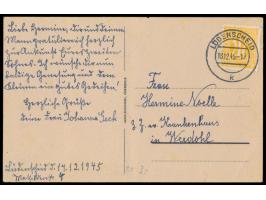 Liebe Hermine, dir und deinem
Mann gratuliere ich herzlich
zur Ankunft Eures zweiten
Sohnes. Ich wünsche dir nun
baldige Genesung und dem
Kleinen ein gutes Gedeihen!
Herzliche Grüße
deine Frau Johanna
Lüdenscheid d. 17.12.1945
LÜDENSCHEID
k
Frau
Hermine Noelle
z. Z. im Krankenhaus
in Werdohl